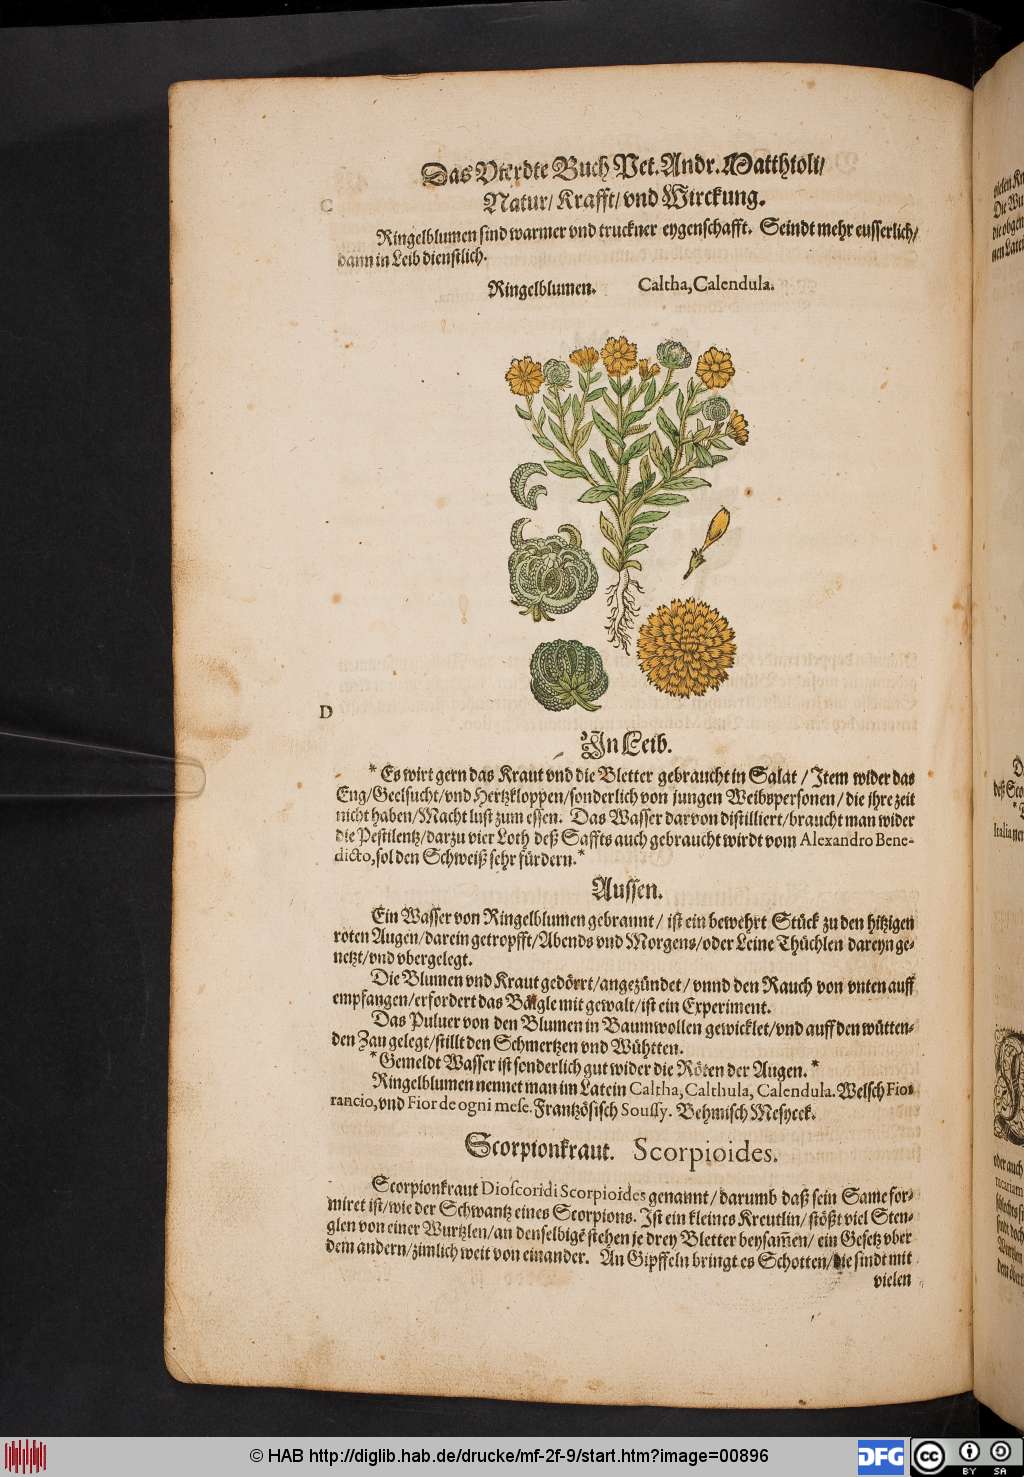 Das Vierdte Buch Pet. Andr. Matthioli/
Natur/ Krafft/ vnd Wirckung.
C
Ringelblumen sind warmer vnd truckner eygenschafft. Seindt mehr eusserlich/
dann in Leib dienstlich.
Ringelblumen. Caltha, Calendula.
D
In Leib.
* Es wirt gern das Kraut vnd die Bletter gebraucht in Salat / Item wider das
Eng/Geelsucht/vnd Hertzkloppen/sonderlich von jungen Weibspersonen/ die ihre zeit
nicht haben/Macht lust zum essen. Das Wasser darvon distilliert/braucht man wider
die Pestilentz/darzu vier Loth deß Saffts auch gebraucht wirdt vom Alexandro Bene-
dicto, sol den Schweiß sehr fürdern.*
Aussen.
Ein Wasser von Ringelblumen gebrannt/ ist ein bewehrt Stück zu den hitzigen
roten Augen/darein getropfft/Abends vnd Morgens/oder Leine Thüchlen dareyn ge-
netzt/vnd vbergelegt.
Die Blumen vnd Kraut gedörrt/angezündet/ vnnd den Rauch von vnten auff
empfangen/erfordert das mit gewalt/ist ein Experiment.
Das Puluer von den Blumen in Baumwollen gewicklet/vnd auff den wütten-
den Zan gelegt/stillt den Schmertzen vnd Wühtten.
* Gemeldt Wasser ist sonderlich gut wider die Röten der Augen. *
Ringelblumen nennet man im Latein Caltha, Calthula, Calendula. Welsch Fior
rancio, vnd Fior de ogni mese. Frantzösisch Soussy. Behmisch Mesyczk.
Scorpionkraut. Scorpioides.
Scorpionkraut Dioscoridi Scorpioides genannt/ darumb daß sein Same for-
miret ist/wie der Schwantz eines Scorpions. Ist ein kleines Kreutlin/ stößt viel Sten-
glen von einer Wurtzlen/an denselbigē stehen je drey Bletter beysam̄en/ ein Gesetz vber
dem andern/zimlich weit von einander. An Gipffeln bringt es Schotten/die sindt mit
vielen
© HAB http://diglib.hab.de/drucke/mf-2f-9/start.htm?image=00896
DFG
cc
BY SA